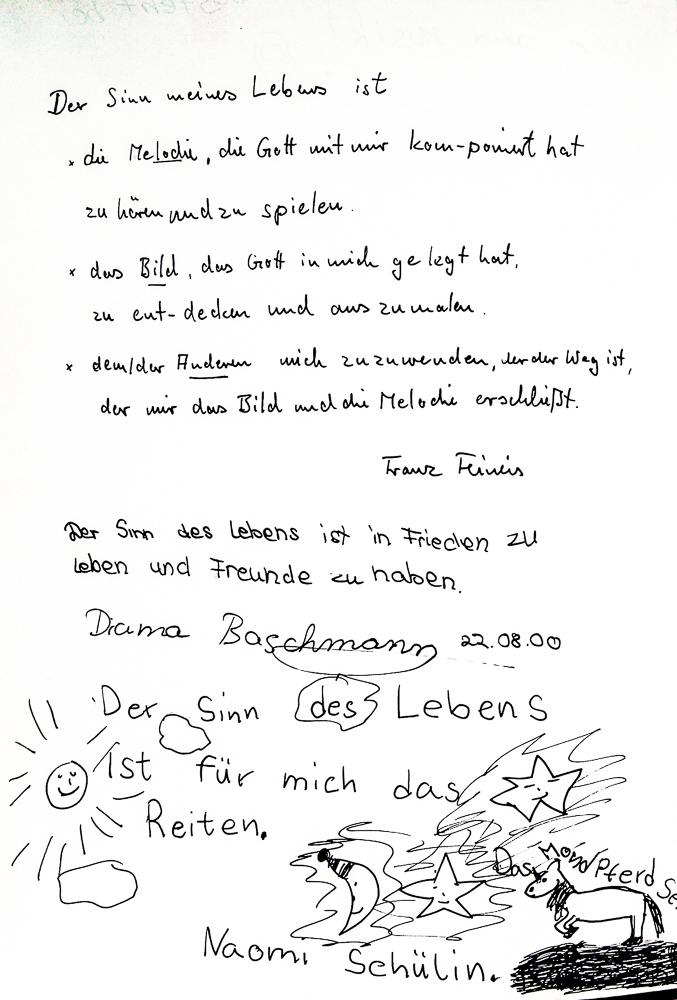 Der Sinn meines Lebens ist
× die Melodie, die Gott mit mir kom-poniert hat
zu hören und zu spielen.
× das Bild, das Gott in mich gelegt hat,
zu ent-decken und auszumalen.
× dem/der Anderen mich zuzuwenden, der der Weg ist,
der mir das Bild und die Melodie erschließt.
Franz
Der Sinn des Lebens ist in Frieden zu
Leben und Freunde zu haben.
Baschmann 22.08.00
Der Sinn des Lebens
Ist für mich das
Reiten.
Das Mond Pferd
Naomi Schülin.